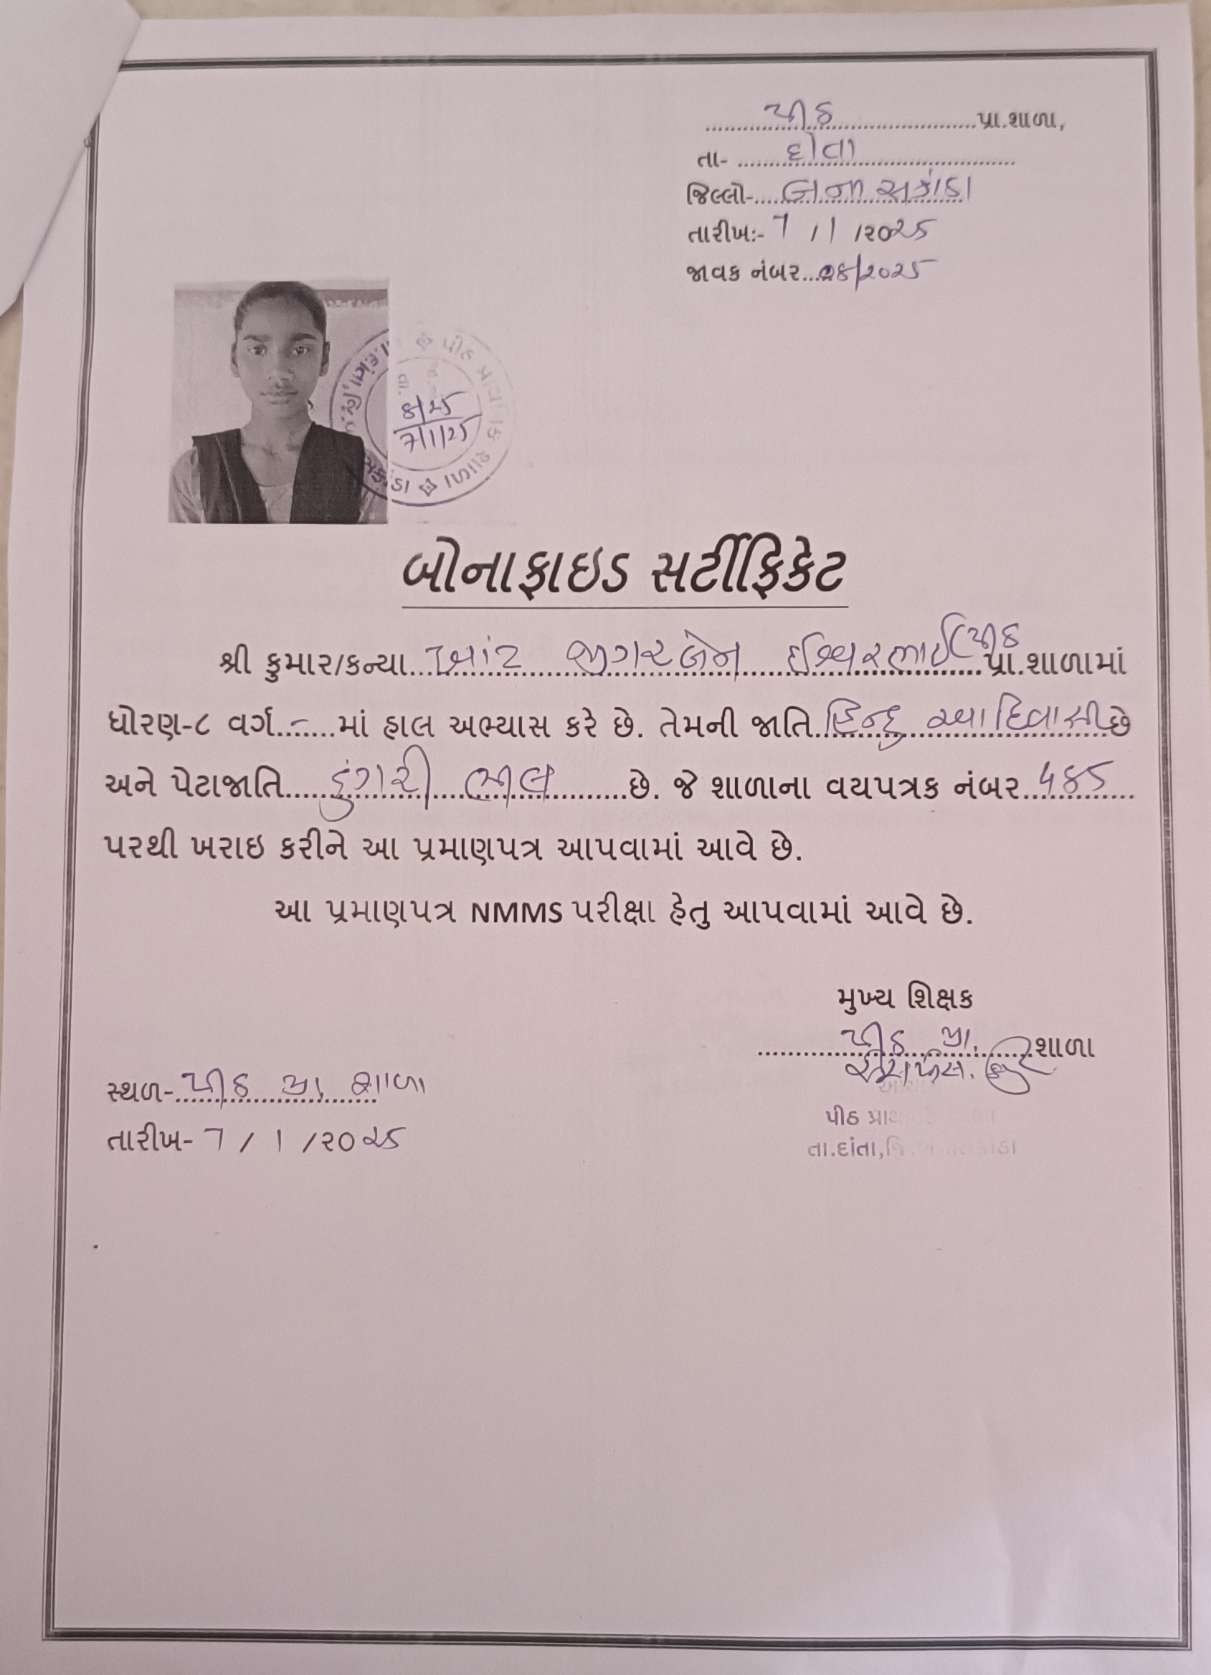 પીઠ પ્રા.શાળા,
તા- દાંતા
જિલ્લો- બનાસકાંઠા
તારીખ:- 7 / 1 /૨૦૨૫
જાવક નંબર ૦૪/૨૦૨૫
પીઠ પ્રાથમિક શાળા
તા.દાંતા,જિ.
8/25
7/1/25
બોનાફાઇડ સર્ટીફિકેટ
શ્રી કુમાર/કન્યા ખાંટ જીગરબેન ઇશ્વરભાઇ પીઠ પ્રા.શાળામાં
ધોરણ-૮ વર્ગ - માં હાલ અભ્યાસ કરે છે. તેમની જાતિ હિન્દુ આદિવાસી છે
અને પેટાજાતિ ડુંગરી ભીલ છે. જે શાળાના વયપત્રક નંબર ૫૪૬૫
પરથી ખરાઇ કરીને આ પ્રમાણપત્ર આપવામાં આવે છે.
આ પ્રમાણપત્ર NMMS પરીક્ષા હેતુ આપવામાં આવે છે.
મુખ્ય શિક્ષક
પીઠ પ્રા. શાળા
સ્થળ- પીઠ પ્રા શાળા
પીઠ
તારીખ- 7 / 1 /૨૦૨૫
તા.દાંતા,